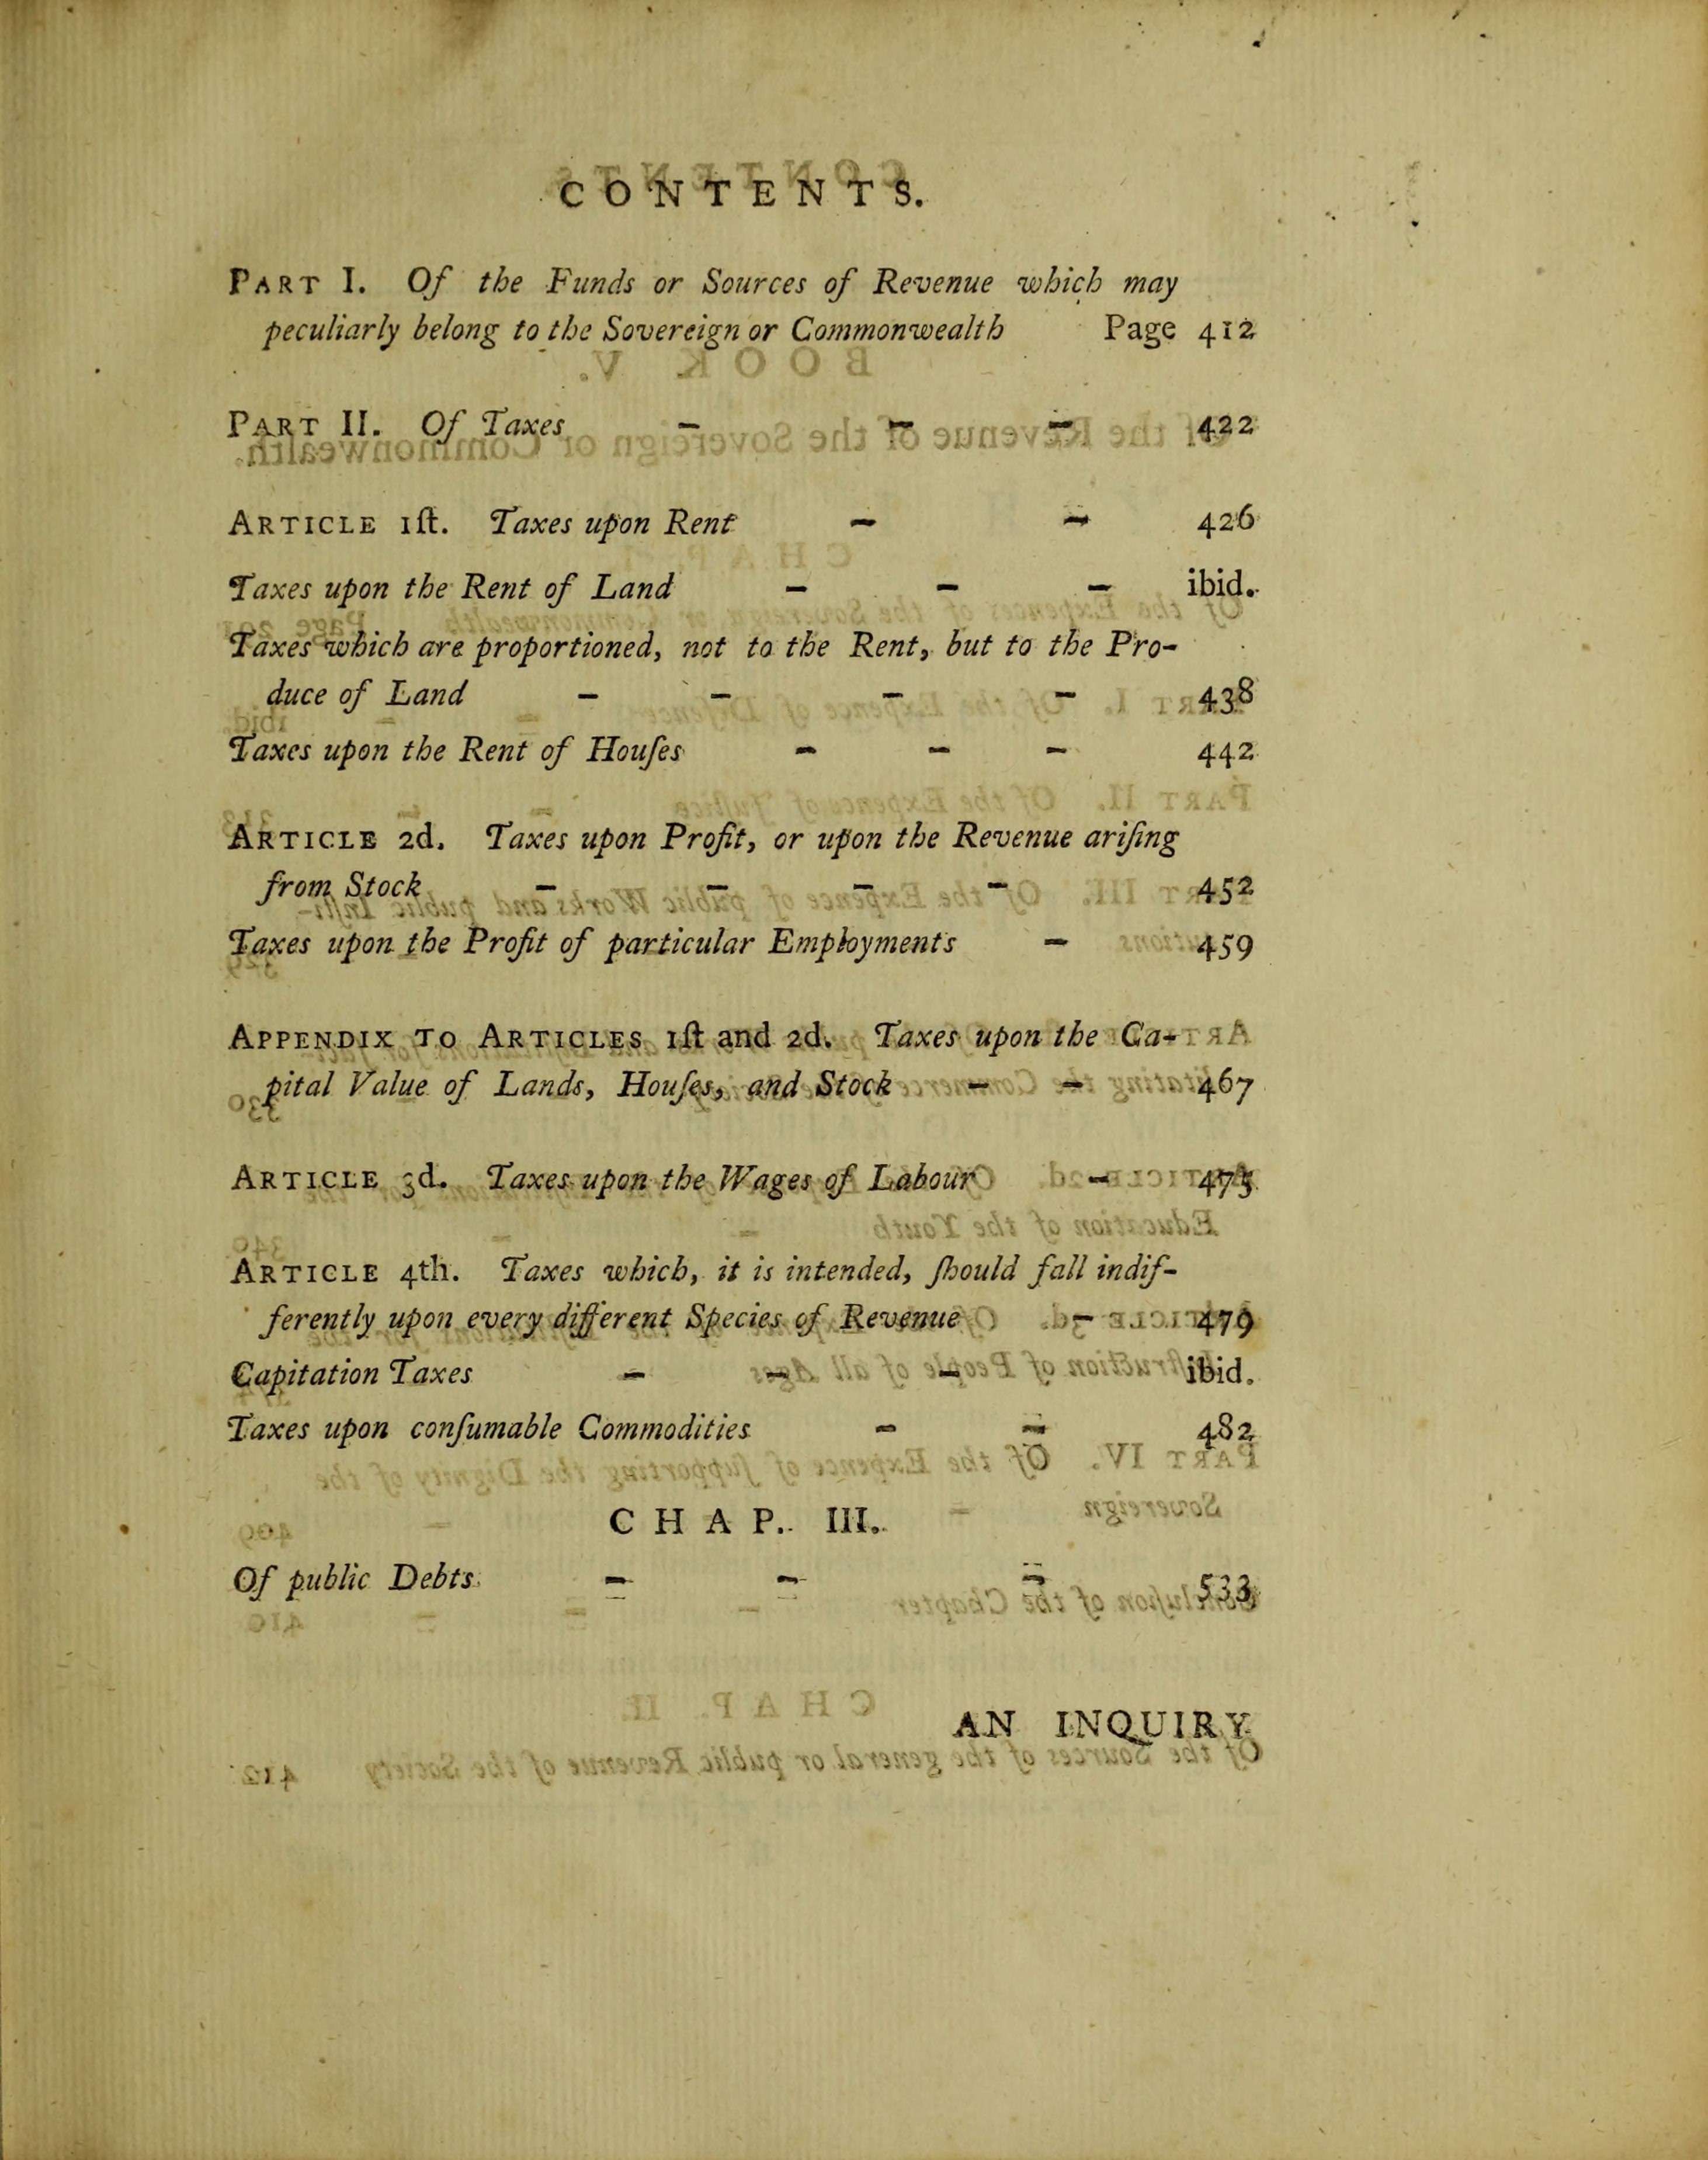 CONTENTS.
PART I. Of the Funds or Sources of Revenue which may
peculiarly belong to the Sovereign or Commonwealth Page 412
PART II. Of Taxes - - - 422
ARTICLE 1ſt. Taxes upon Rent - - 426
Taxes upon the Rent of Land - - - ibid.
Taxes which are proportioned, not to the Rent, but to the Pro-
duce of Land - - - - 438
Taxes upon the Rent of Houſes - - - 442
ARTICLE 2d. Taxes upon Profit, or upon the Revenue ariſing
from Stock - - - - 452
Taxes upon the Profit of particular Employments - 459
APPENDIX TO ARTICLES 1ſt and 2d. Taxes upon the Ca-
pital Value of Lands, Houſes, and Stock - - 467
ARTICLE 3d. Taxes upon the Wages of Labour -
ARTICLE 4th. Taxes which, it is intended, ſhould fall indif-
ferently upon every different Species of Revenue - 479
Capitation Taxes - - - ibid.
Taxes upon conſumable Commodities - - 482
CHAP. III.
Of public Debts - - - 533
AN INQUIRY